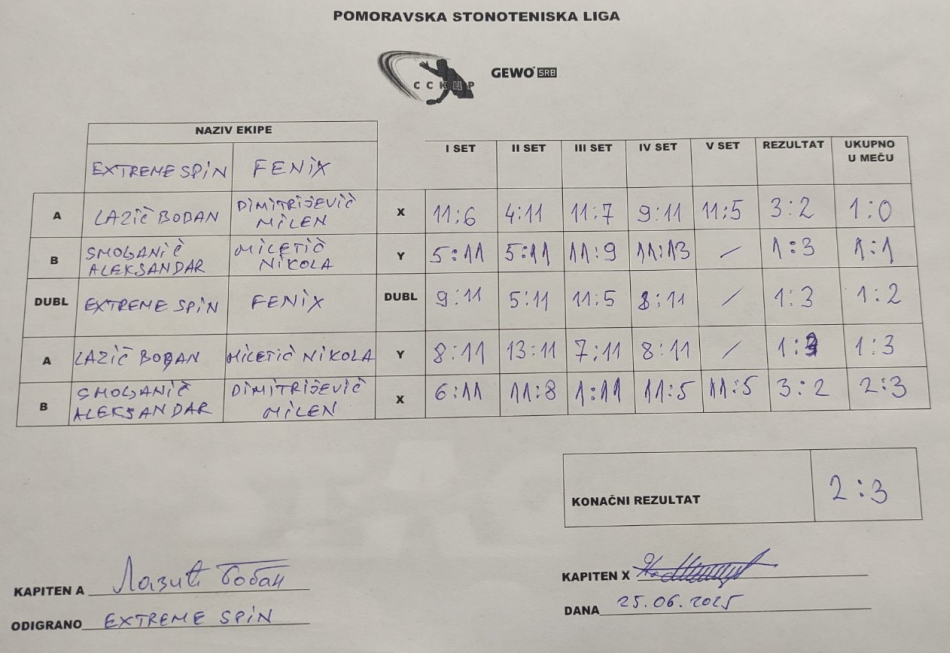 POMORAVSKA STONOTENISKA LIGA
CCKUP
GEWO SRB
NAZIV EKIPE
I SET II SET III SET IV SET V SET REZULTAT UKUPNO U MEČU
EXTREME SPIN FENIX
A LAZIČ BOBAN DIMITRIJEVIČ MILEN X 11:6 4:11 11:7 9:11 11:5 3:2 1:0
B SMOLJANIČ ALEKSANDAR MILETIČ NIKOLA Y 5:11 5:11 11:9 11:13 / 1:3 1:1
DUBL EXTREME SPIN FENIX DUBL 9:11 5:11 11:5 8:11 / 1:3 1:2
A LAZIČ BOBAN MILETIČ NIKOLA Y 8:11 13:11 7:11 8:11 / 1:3 1:3
B SMOLJANIČ ALEKSANDAR DIMITRIJEVIČ MILEN X 6:11 11:8 1:11 11:5 11:5 3:2 2:3
KONAČNI REZULTAT 2:3
KAPITEN A Лазић Бобан
KAPITEN X
ODIGRANO EXTREME SPIN
DANA 25.06.2025